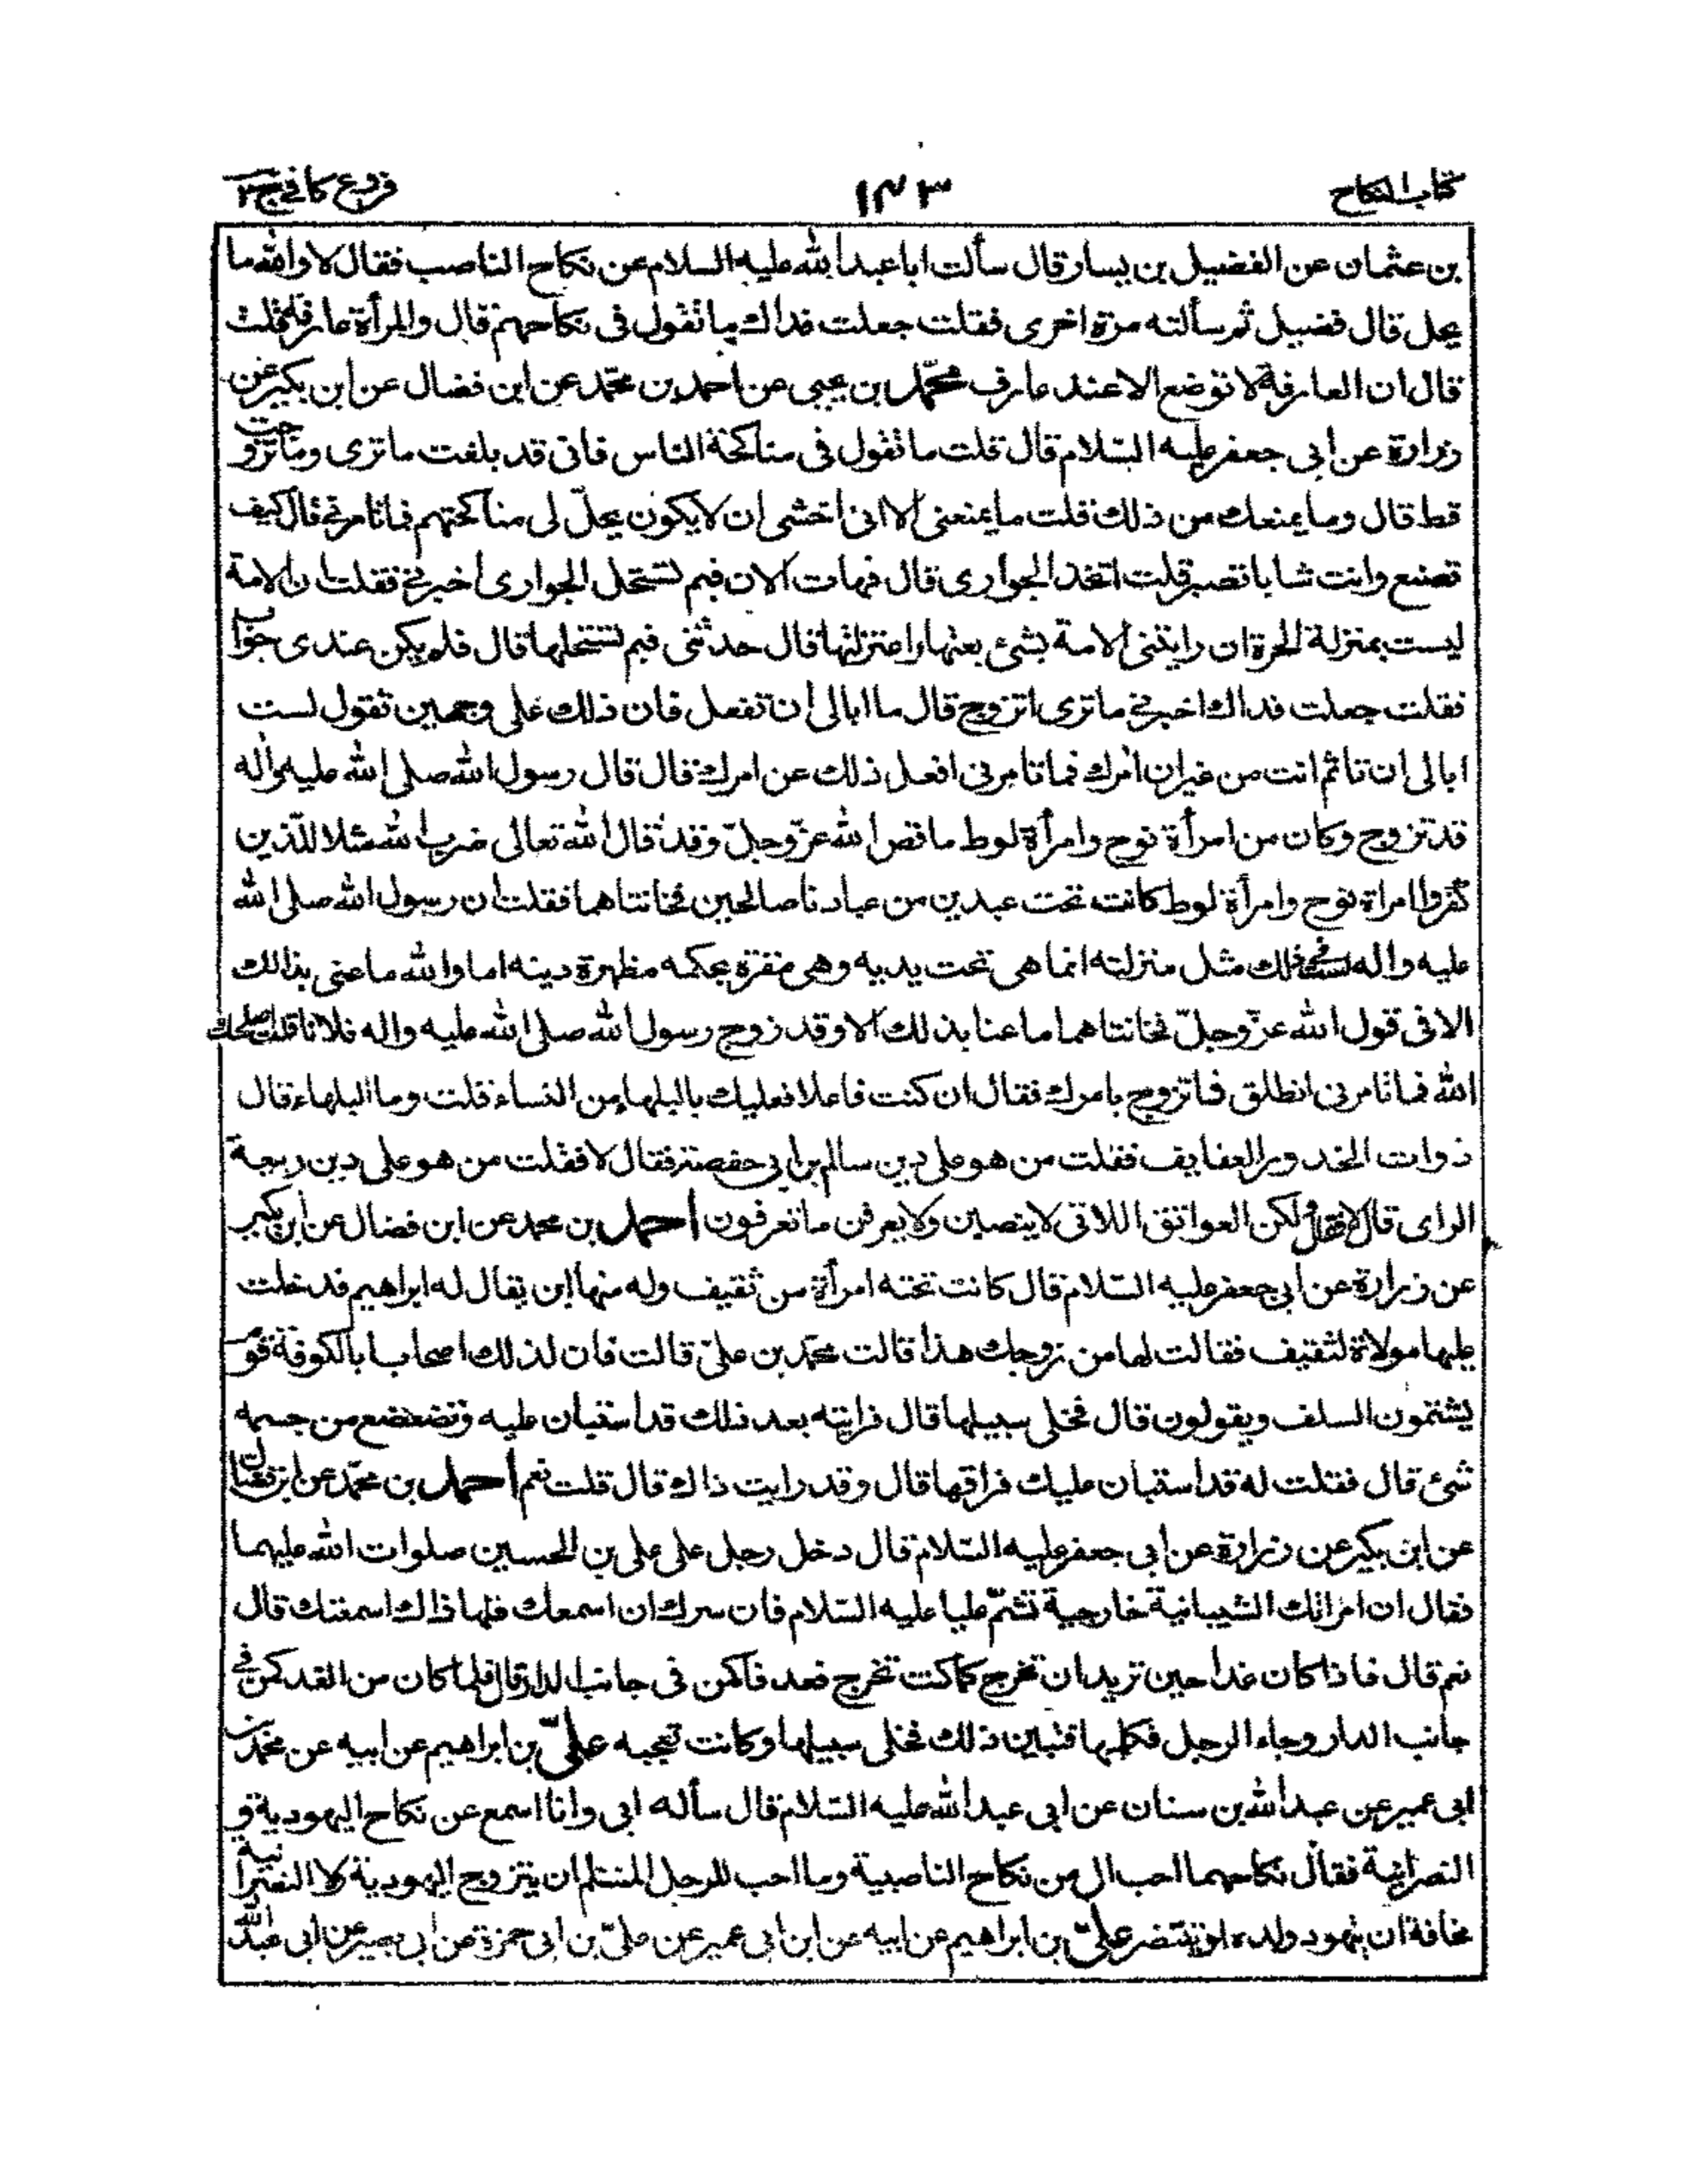 كتاب النكاح ١٤٣ فروع كافي ج٢
بن عثمان عن الفضيل بن يسار قال سألت ابا عبد الله عليه السلام عن نكاح الناصب فقال لا والله ما
يحل قال فضيل ثم سألته مرة اخرى فقلت جعلت فداك ما تقول فى نكاحهم قال والمرأة عارفة قلت
قال ان العارفة لا توضع الا عند عارف محمّد بن يحيى عن احمد بن محمّد عن ابن فضال عن ابن بكير عن
زرارة عن ابى جعفر عليه السّلام قال قلت ما تقول فى مناكحة الناس فانى قد بلغت ما ترى وما تزوجت
قط قال وما يمنعك من ذلك قلت ما يمنعنى الا انى اخشى ان لا يكون يحلّ لى مناكحتهم فما تامرنى قال كيف
تصنع وانت شاب اتصبر قلت اتخذ الجوارى قال فهات الان فبم تستحل الجوارى اخبرنى فقلت ان الامة
ليست بمنزلة الحرة ان رابتنى الامة بشئ بعتها واعتزلتها قال حدثنى فبم تستحلها قال فلم يكن عندى جواب
فقلت جعلت فداك اخبرنى ما ترى اتزوج قال ما ابالى ان تفعل فان ذلك على وجهين تقول لست
ابالى ان تاثم انت من غير ان امرك فما تامرنى افعل ذلك عن امرك قال قال رسول الله صلى الله عليه واله
قد تزوج وكان من امرأة نوح وامرأة لوط ما قص الله عزّ وجلّ وقد قال الله تعالى ضرب الله مثلا للّذين
كفروا امراة نوح وامرأة لوط كانتا تحت عبدين من عبادنا صالحين فخانتاهما فقلت ان رسول الله صلى الله
عليه واله فى ذلك مثل منزلته انما هى تحت يديه وهى مقرة بحكمه مظهرة دينه اما والله ما عنى بذالك
الا فى قول الله عزّ وجلّ فخانتاهما ما عنا بذلك الا وقد زوج رسول الله صلى الله عليه واله فلانا قلت اصلحك
الله فما تامرنى انطلق فاتزوج بامرك فقال ان كنت فاعلا فعليك بالبلهاء من النساء قلت وما البلهاء قال
ذوات الخدور العفايف فقلت من هو على دين سالم بن ابى حفصة فقال لا فقلت من هو على دين ربيعة
الراى قال لا ولكن العواتق اللاتى لا ينصبن ولا يعرفن ما تعرفون احمد بن محمد عن ابن فضال عن ابن بكير
عن زرارة عن ابى جعفر عليه السّلام قال كانت تحته امرأة من ثقيف وله منها ابن يقال له ابراهيم فدخلت
عليها مولاة لثقيف فقالت لها من زوجك هذا قالت محمّد بن علىّ قالت فان لذلك اصحابا بالكوفة قوم
يشتمون السلف ويقولون قال فخلى سبيلها قال فرايته بعد ذلك قد استبان عليه وتضعضع من جسمه
شئ قال فقلت له قد استبان عليك فراقها قال وقد رايت ذاك قال قلت نعم احمد بن محمّد عن ابن فضال
عن ابن بكير عن زرارة عن ابى جعفر عليه السّلام قال دخل رجل على على بن الحسين صلوات الله عليهما
فقال ان امراتك الشيبانية خارجية تشتم عليا عليه السّلام فان سرك ان اسمعك منها ذاك اسمعتك قال
نعم قال فاذا كان غدا حين تريد ان تخرج كما كنت تخرج فعد فاكمن فى جانب الدار قال فلما كان من الغد كمن فى
جانب الدار وجاء الرجل فكلمها فتبين ذلك فخلى سبيلها وكانت تعجبه علىّ بن ابراهيم عن ابيه عن محمّد بن
ابى عمير عن عبد الله بن سنان عن ابى عبد الله عليه السّلام قال سأله ابى وانا اسمع عن نكاح اليهودية و
النصرانية فقال نكاحهما احب الى من نكاح الناصبية وما احب للرجل المسلم ان يتزوج اليهودية ولا النصرانية
مخافة ان يتهود ولده او يتنصر علىّ بن ابراهيم عن ابيه عن ابن ابى عمير عن علىّ بن ابى حمزة عن ابى بصير عن ابى عبد الله